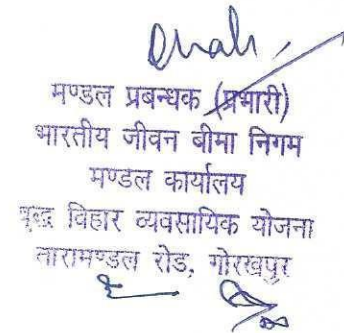 मण्डल प्रबन्धक (प्रभारी)
भारतीय जीवन बीमा निगम
मण्डल कार्यालय
बुद्ध विहार व्यवसायिक योजना
तारामण्डल रोड, गोरखपुर